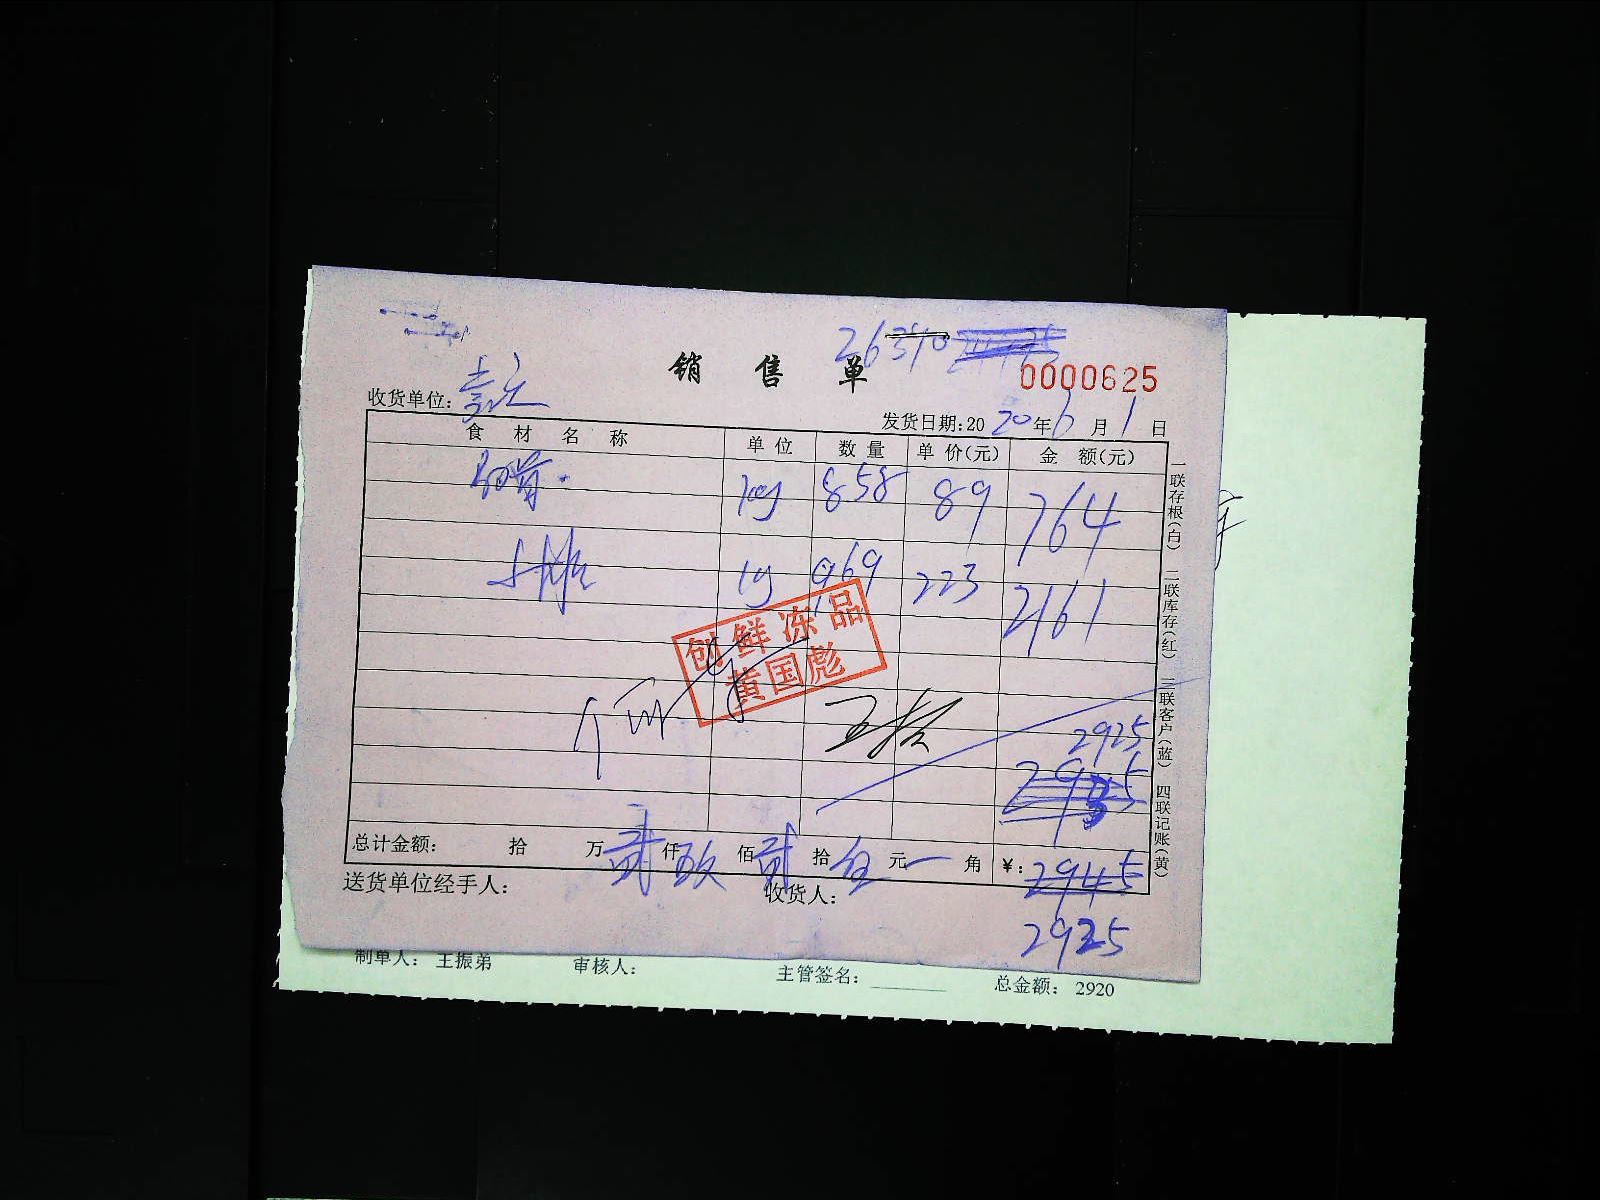 26310
销售单
0000625
收货单位:
发货日期:2020年6月1日
食材名称 单位 数量 单价(元) 金额(元)
kg 858 89 764
kg 969 223 2161
创鲜冻品
黄国彪
2925
总计金额: 拾 万贰仟玖佰贰拾伍元一角 ¥: 2945
送货单位经手人: 收货人:
2925
一联存根(白) 二联库存(红) 三联客户(蓝) 四联记账(黄)
制单人: 王振弟 审核人: 主管签名: 总金额: 2920